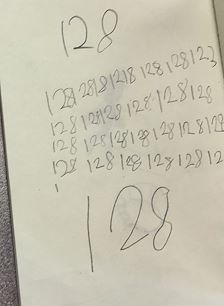 128
128 128 1218 128 128 123
128 128 128 128 128 128
128 128 128 128 128 128 128
128 128 128 128 128 12
1
128